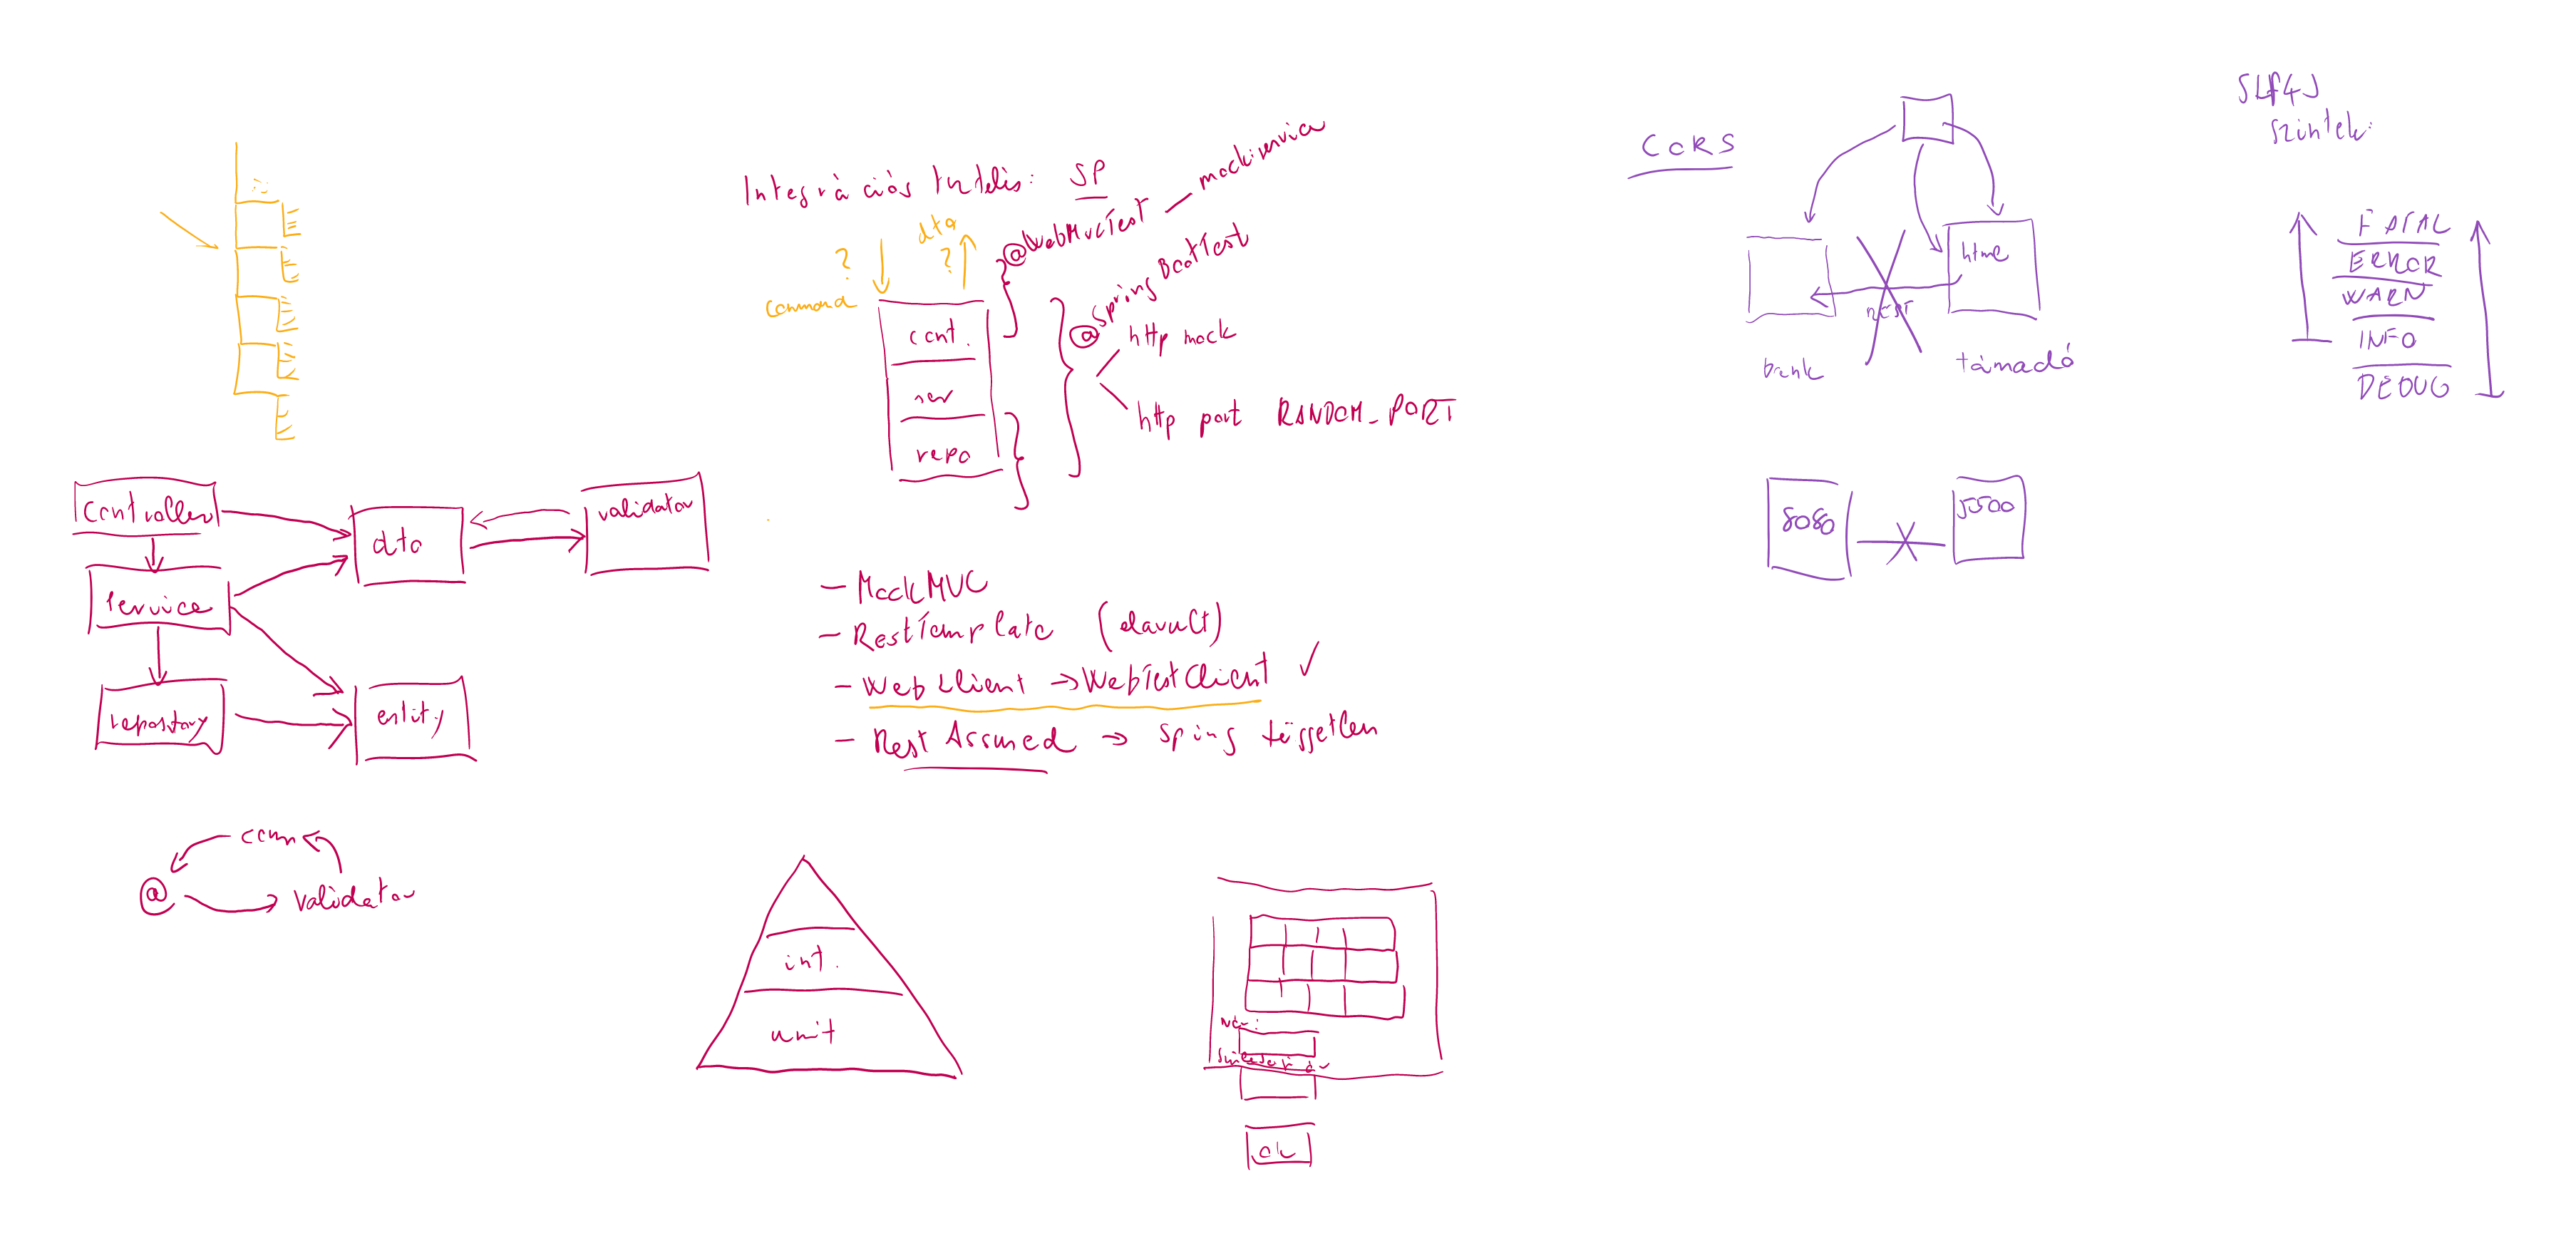 Controller
Service
repository
dto
validator
entity
@
validator
Integrációs tesztelés: SP
dto
?
?
command
cont.
repo
@WebMvcTest
@SpringBootTest
http mock
http port RANDOM_PORT
- MockMVC
- RestTemplate (elavult)
- WebClient → WebTestClient ✓
- Rest Assured → Sping független
int.
unit
Név:
ok
CORS
html
REST
bank
támadó
8080
5500
SLF4J
szintek:
FATAL
ERROR
WARN
INFO
DEBUG